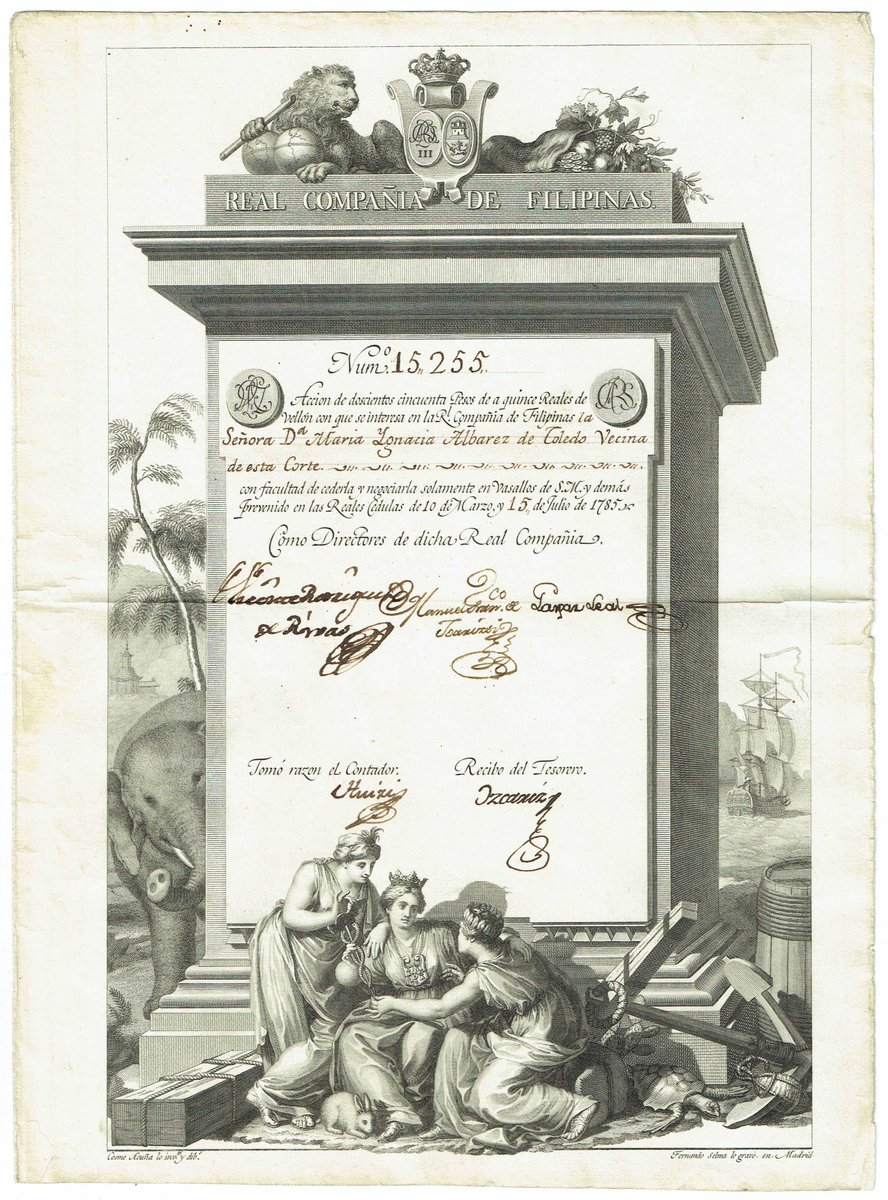 III
REAL COMPAÑIA DE FILIPINAS.
Num.º 15,,255,,
Accion de doscientos cincuenta Pesos de a quince Reales de
Vellón con que se interesa en la R.l Compañia de Filipinas la
Señora D.a Maria Ygnacia Albarez de Toledo Vecina
de esta Corte.
con facultad de cederla y negociarla solamente en Vasallos de S.M. y demás
prevenido en las Reales Cedulas de 10 de Marzo, y 15, de Julio de 1785.
Como Directores de dicha Real Compañia.
de Rivas
Gaspar Leal
Tomó razon el Contador.
Recibo del Tesorero.
Cosme Acuña lo inv.to y dib.º
Fernando Selma lo gravó en Madrid